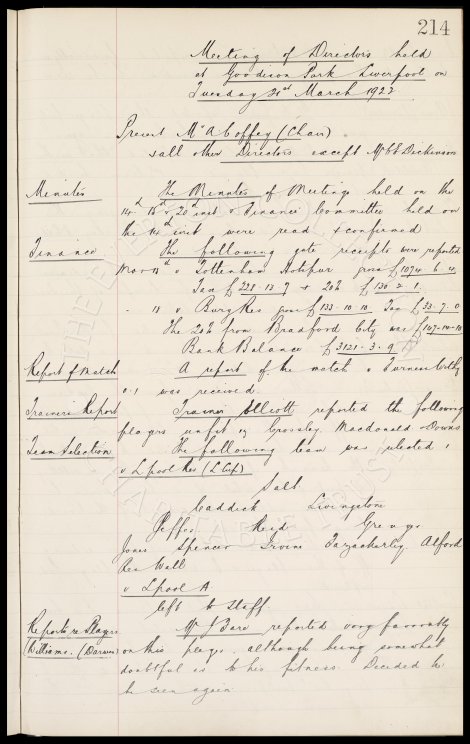 214
Meeting of Directors held
at Goodison Park Liverpool on
Tuesday 21st March 1922
Present Mr A Coffey (Chair)
& all other Directors except Mr C E Dickinson
Minutes The Minutes of Meetings held on the
14th 16th & 20th inst & Finance Committee held on
the 14th inst were read & confirmed
Finance The following gate receipts were reported
Mar 18th v Tottenham Hotspur gross £1074. 6. 4
Tax £228. 13. 7 & 20% £136. 2. 1
" 18 v Bury Res gross £133. 10. 10 Tax £33. 7. 0
The 20% from Bradford City was £147. 10. 10
Bank Balance £3121. 3. 9
Report of Match A report of the match v
0.1 was received
Trainers Report Trainer Elliott reported the following
players unfit eg Crossley, Macdonald & Downs
Team Selection The following team was selected
v Lpool Res (L Cup)
Salt
Caddick Livingstone
Peffer Reid Grenyer
Jones Spencer Irvine Fazackerley Alford
Res Wall
v Lpool A
left to staff.
Reports re Players Mr J Bard reported very favorably
Williams. (Darwen) on this player, although being somewhat
doubtful as to his fitness. Decided he
be seen again